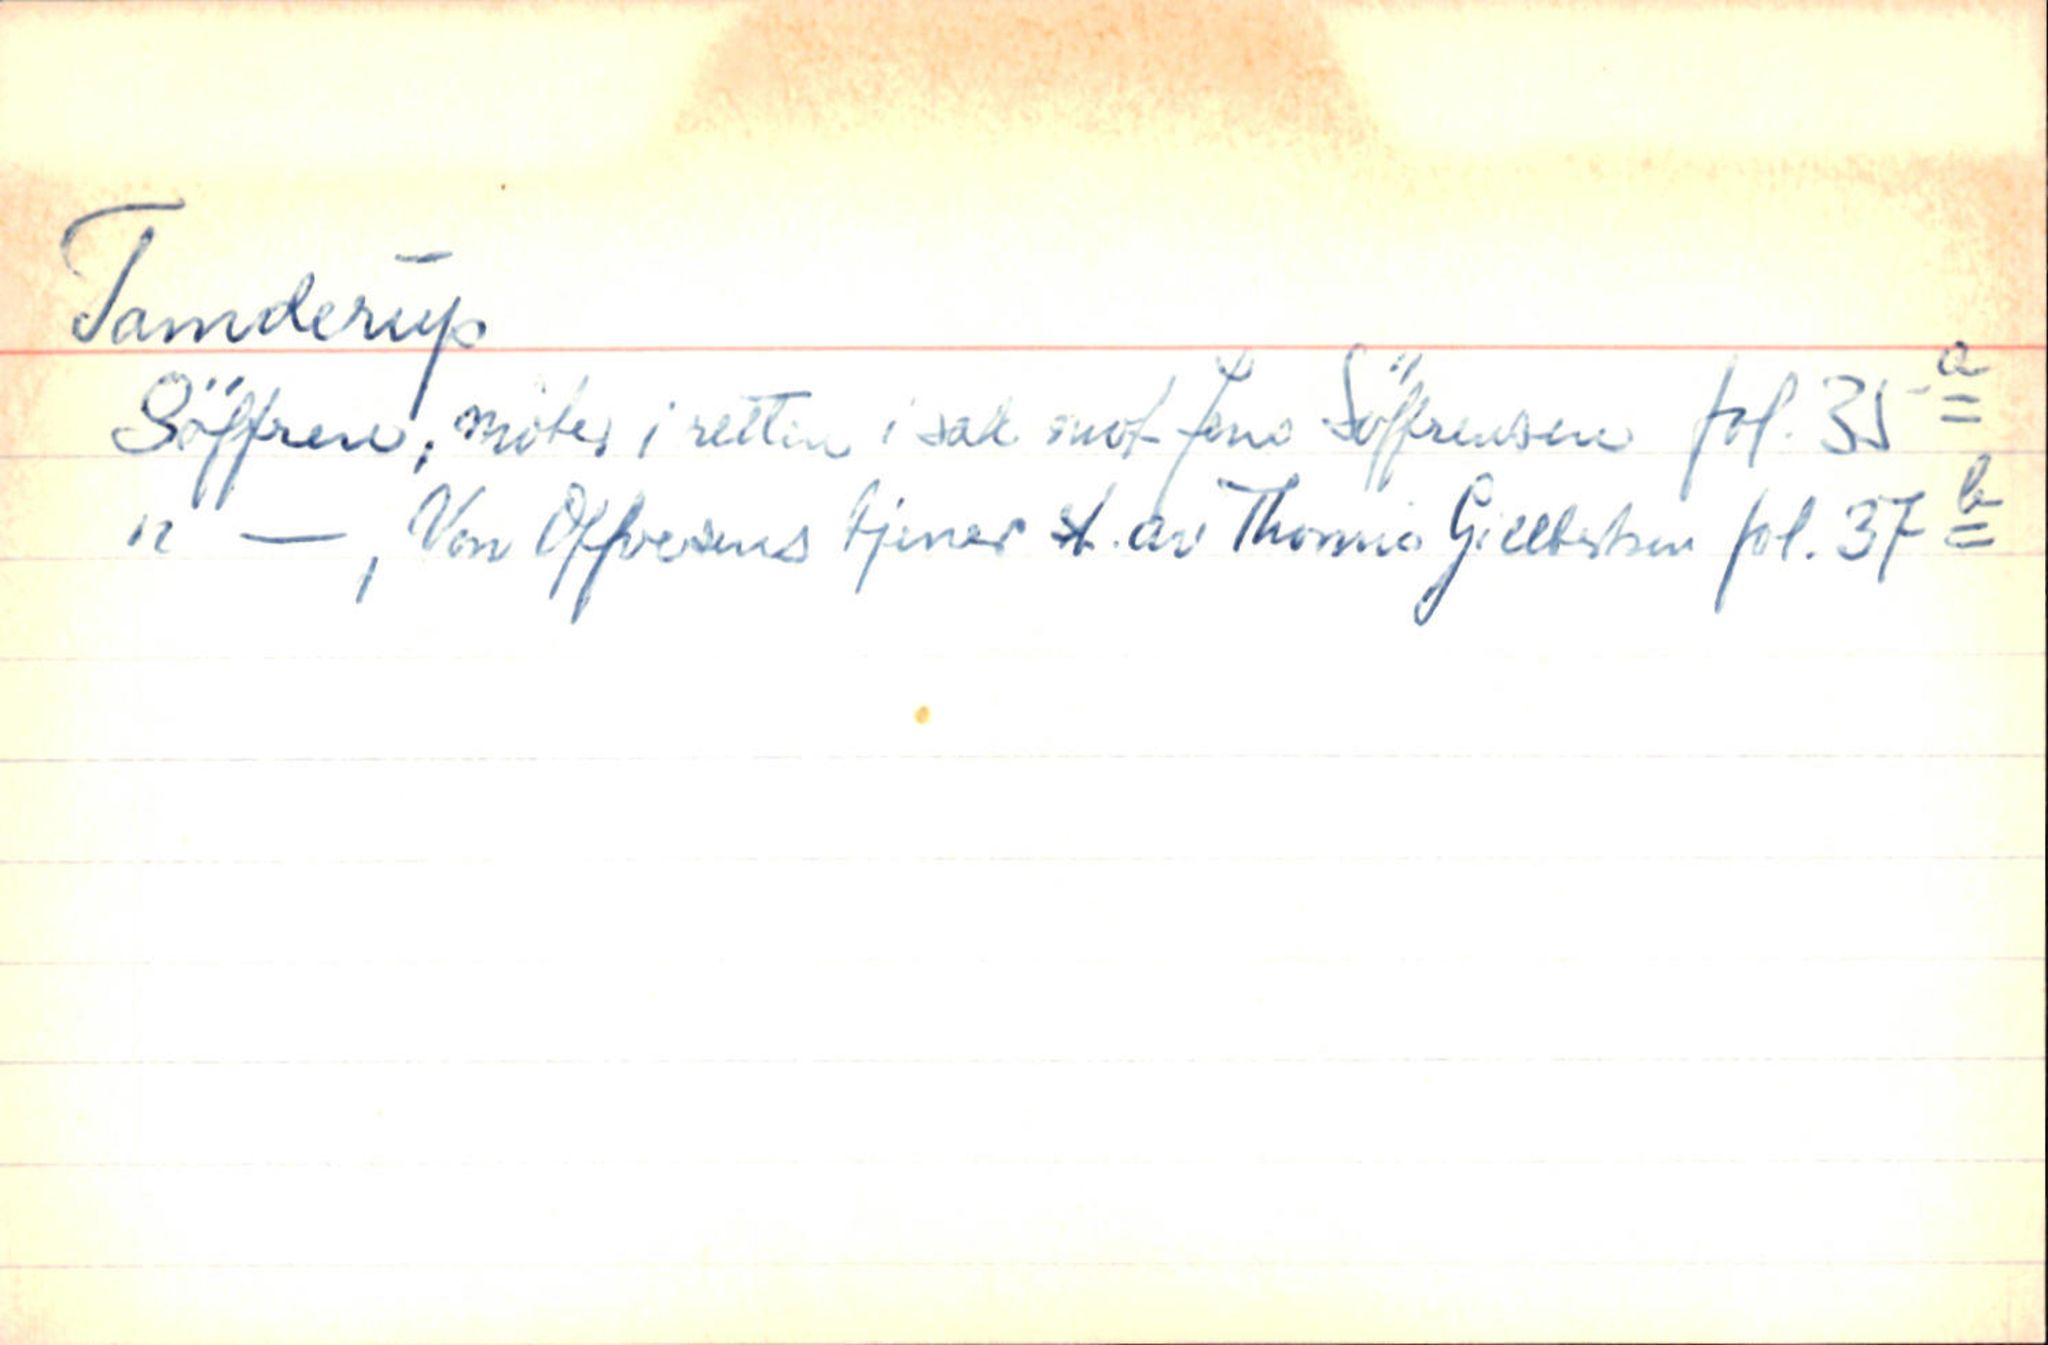 Tamderup
Söffren, möter i retten i sak mot Jens Söffrensen fol. 35 a
" — , Von Offvesens tjener st. av Thomis Gillbertsen fol. 37 b